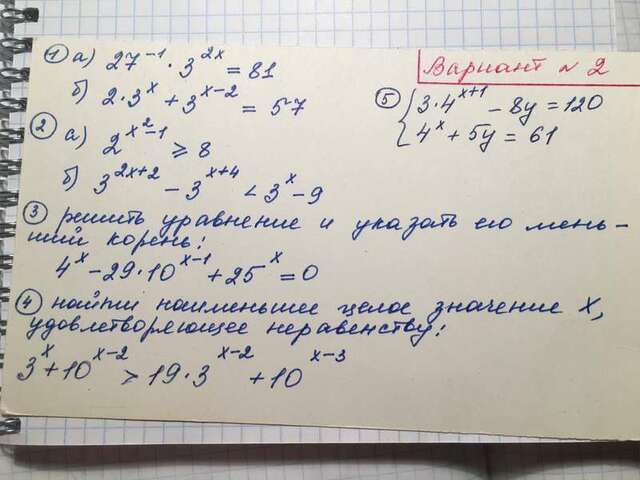 Вариант № 2
① а) 27⁻¹ · 3²ˣ = 81
б) 2·3ˣ + 3ˣ⁻² = 57
② а) 2^(x²-1) ≥ 8
б) 3²ˣ⁺² - 3ˣ⁺⁴ < 3ˣ - 9
③ решить уравнение и указать его мень-
ший корень:
4ˣ - 29·10ˣ⁻¹ + 25ˣ = 0
④ найти наименьшее целое значение x,
удовлетворяющее неравенству:
3ˣ + 10ˣ⁻² > 19·3ˣ⁻² + 10ˣ⁻³
⑤ { 3·4ˣ⁺¹ - 8y = 120
4ˣ + 5y = 61